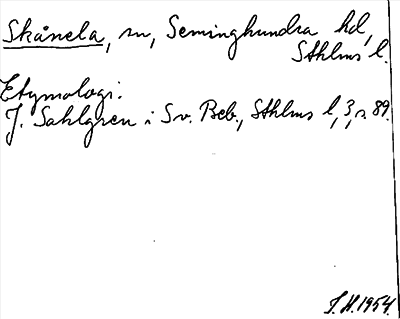 Skånela, sn, Seminghundra hd,
Sthlms l.
Etymologi:
J. Sahlgren i Sv. Beb., Sthlms l, 3, s. 89.
S.H. 1954.